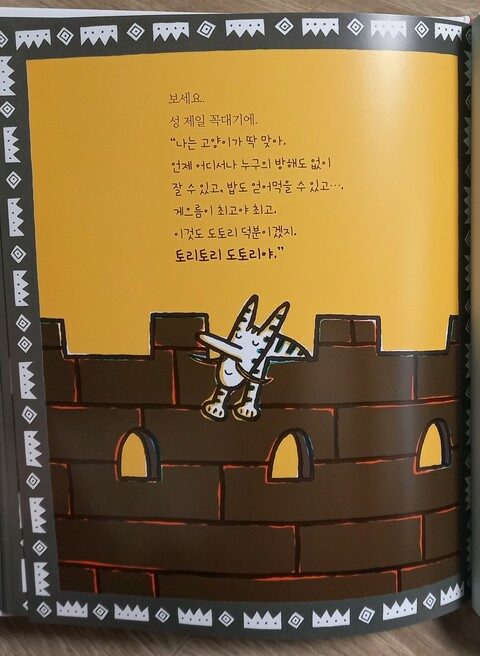 보세요.
성 제일 꼭대기에.
"나는 고양이가 딱 맞아.
언제 어디서나 누구의 방해도 없이
잘 수 있고, 밥도 얻어먹을 수 있고…,
게으름이 최고야 최고.
이것도 도토리 덕분이겠지.
토리토리 도토리야."